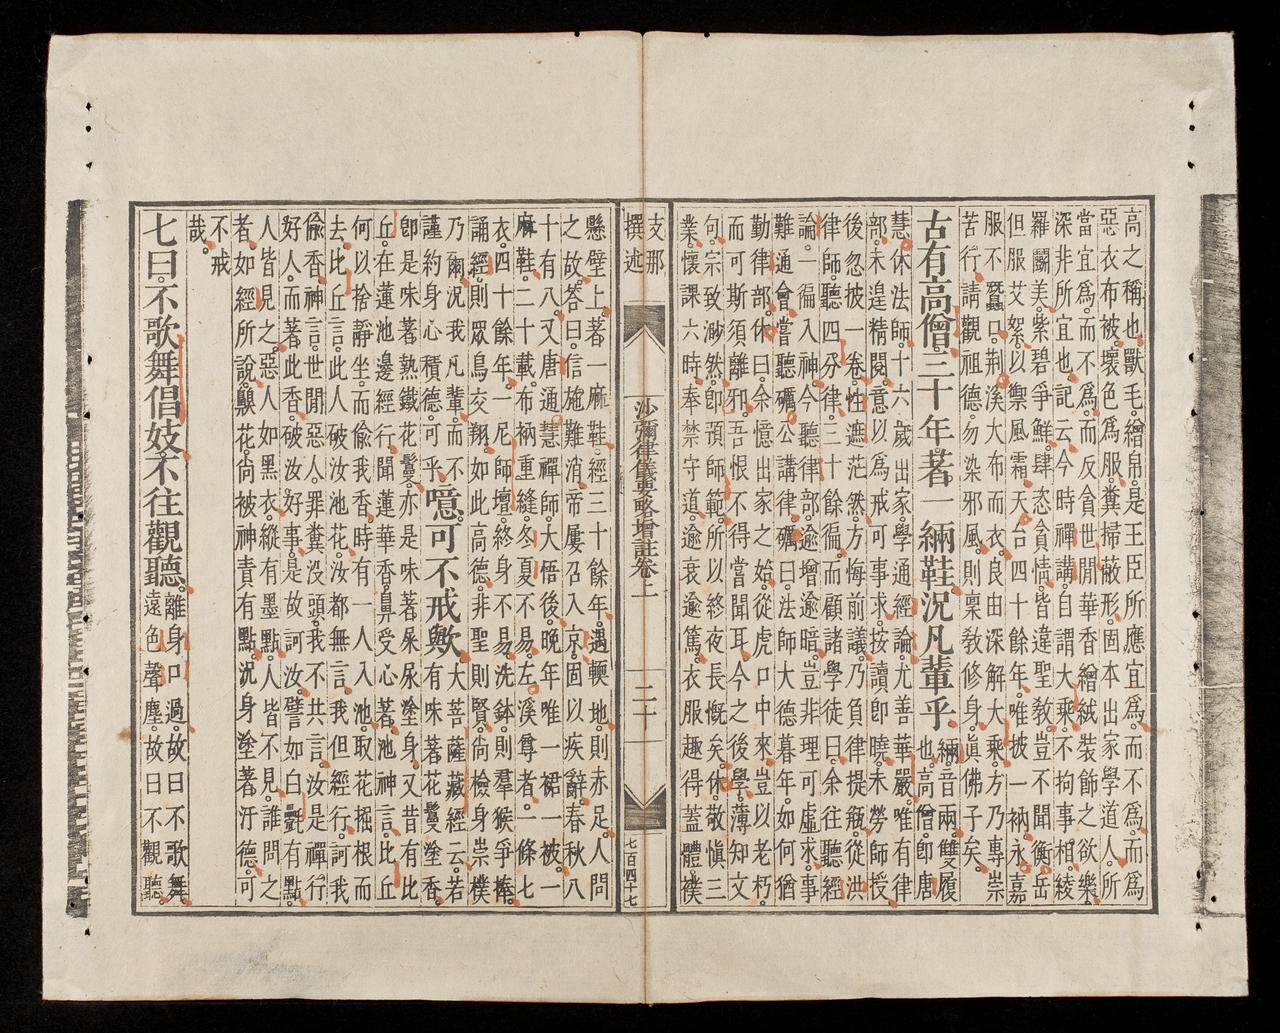 高之稱也。獸毛。繒帛。是王臣所應宜爲。而不爲。而爲
惡衣布被。壞色爲服。糞掃蔽形。固本出家學道人。所
當宜爲。而不爲。而反貪世閒華香繒絨。裝飾之欲樂。
深非所宜也。記云。今時禪講。自謂大乘。不拘事相。綾
羅鬭美。紫碧爭鮮。肆恣貪情。皆違聖敎。豈不聞衡岳
但服艾絮。以禦風霜。天台四十餘年。唯披一衲。永嘉
服不蠶口。荆溪大布而衣。良由深解大乘。方乃專崇
苦行。請觀祖德。勿染邪風。則稟敎修身。眞佛子矣。
古有高僧。三十年著一緉鞋。況凡輩乎。緉。音兩。雙履也。高僧。卽唐
慧休法師。十六歲出家。學通經論。尤善華嚴。唯有律
部。未遑精閱。意以爲戒可事求。按讀卽曉。未勞師授。
後忽披一卷。性遮茫然。方悔前議。乃負律提瓶。從洪
律師。聽四分律。三十餘徧。而顧諸學徒曰。余往聽經
論。一徧入神。今聽律部。逾增逾暗。豈非理可虛求。事
難通會。嘗聽礪公講律。礪曰。法師大德暮年。如何猶
勤律部。休曰。余憶出家之始。從虎口中來。豈以老朽。
而可斯須離邪。吾恨不得嘗聞耳。今之後學。薄知文
句。宗致渺然。卽預師範。所以終夜長慨矣。休敬愼三
業。懷課六時。奉禁守道。逾衰逾篤。衣服趣得蓋體。襆
支那
撰述
沙彌律儀要略增註卷上
二十
七百四十七
懸壁上。著一麻鞋。經三十餘年。遇輭地。則赤足。人問
之故。答曰。信施難消。帝屢召入京。固以疾辭。春秋八
十有八。又唐通慧禪師。大悟後。晚年唯一裙一被。一
麻鞋。二十載。布衲重縫。冬夏不易。左溪尊者。一條七
衣。四十餘年。一尼師壇。終身不易。洗鉢。則羣猴爭捧。
誦經。則眾鳥交翔。如此高德。非聖則賢。尙檢身崇樸。
乃爾。況我凡輩。而不
謹約身心。積德可乎。噫。可不戒歟。大菩薩藏經云。若有味著花鬘塗香。
卽是味著熱鐵花鬘。亦是味著屎尿塗身。又昔有比
丘。在蓮池邊經行。聞蓮華香。鼻受心著。池神言。比丘
何以捨靜坐。而偸我香。時有一人入池。取花掘根而
去。比丘言。此人破汝池花。汝都無言。我但經行。訶我
偸香。神言。世閒惡人。罪糞沒頭。我不共言。汝是禪行
好人。而著此香。破汝好事。是故訶汝。譬如白㲲有點。
人皆見之。惡人如黑衣。縱有墨點。人皆不見。誰問之
者。如經所說。齅花。尙被神責有點。況身塗著汙德。可
不戒
哉。
七曰。不歌舞倡妓。不往觀聽。離身口過。故曰不歌舞。遠色聲塵。故曰不觀聽。